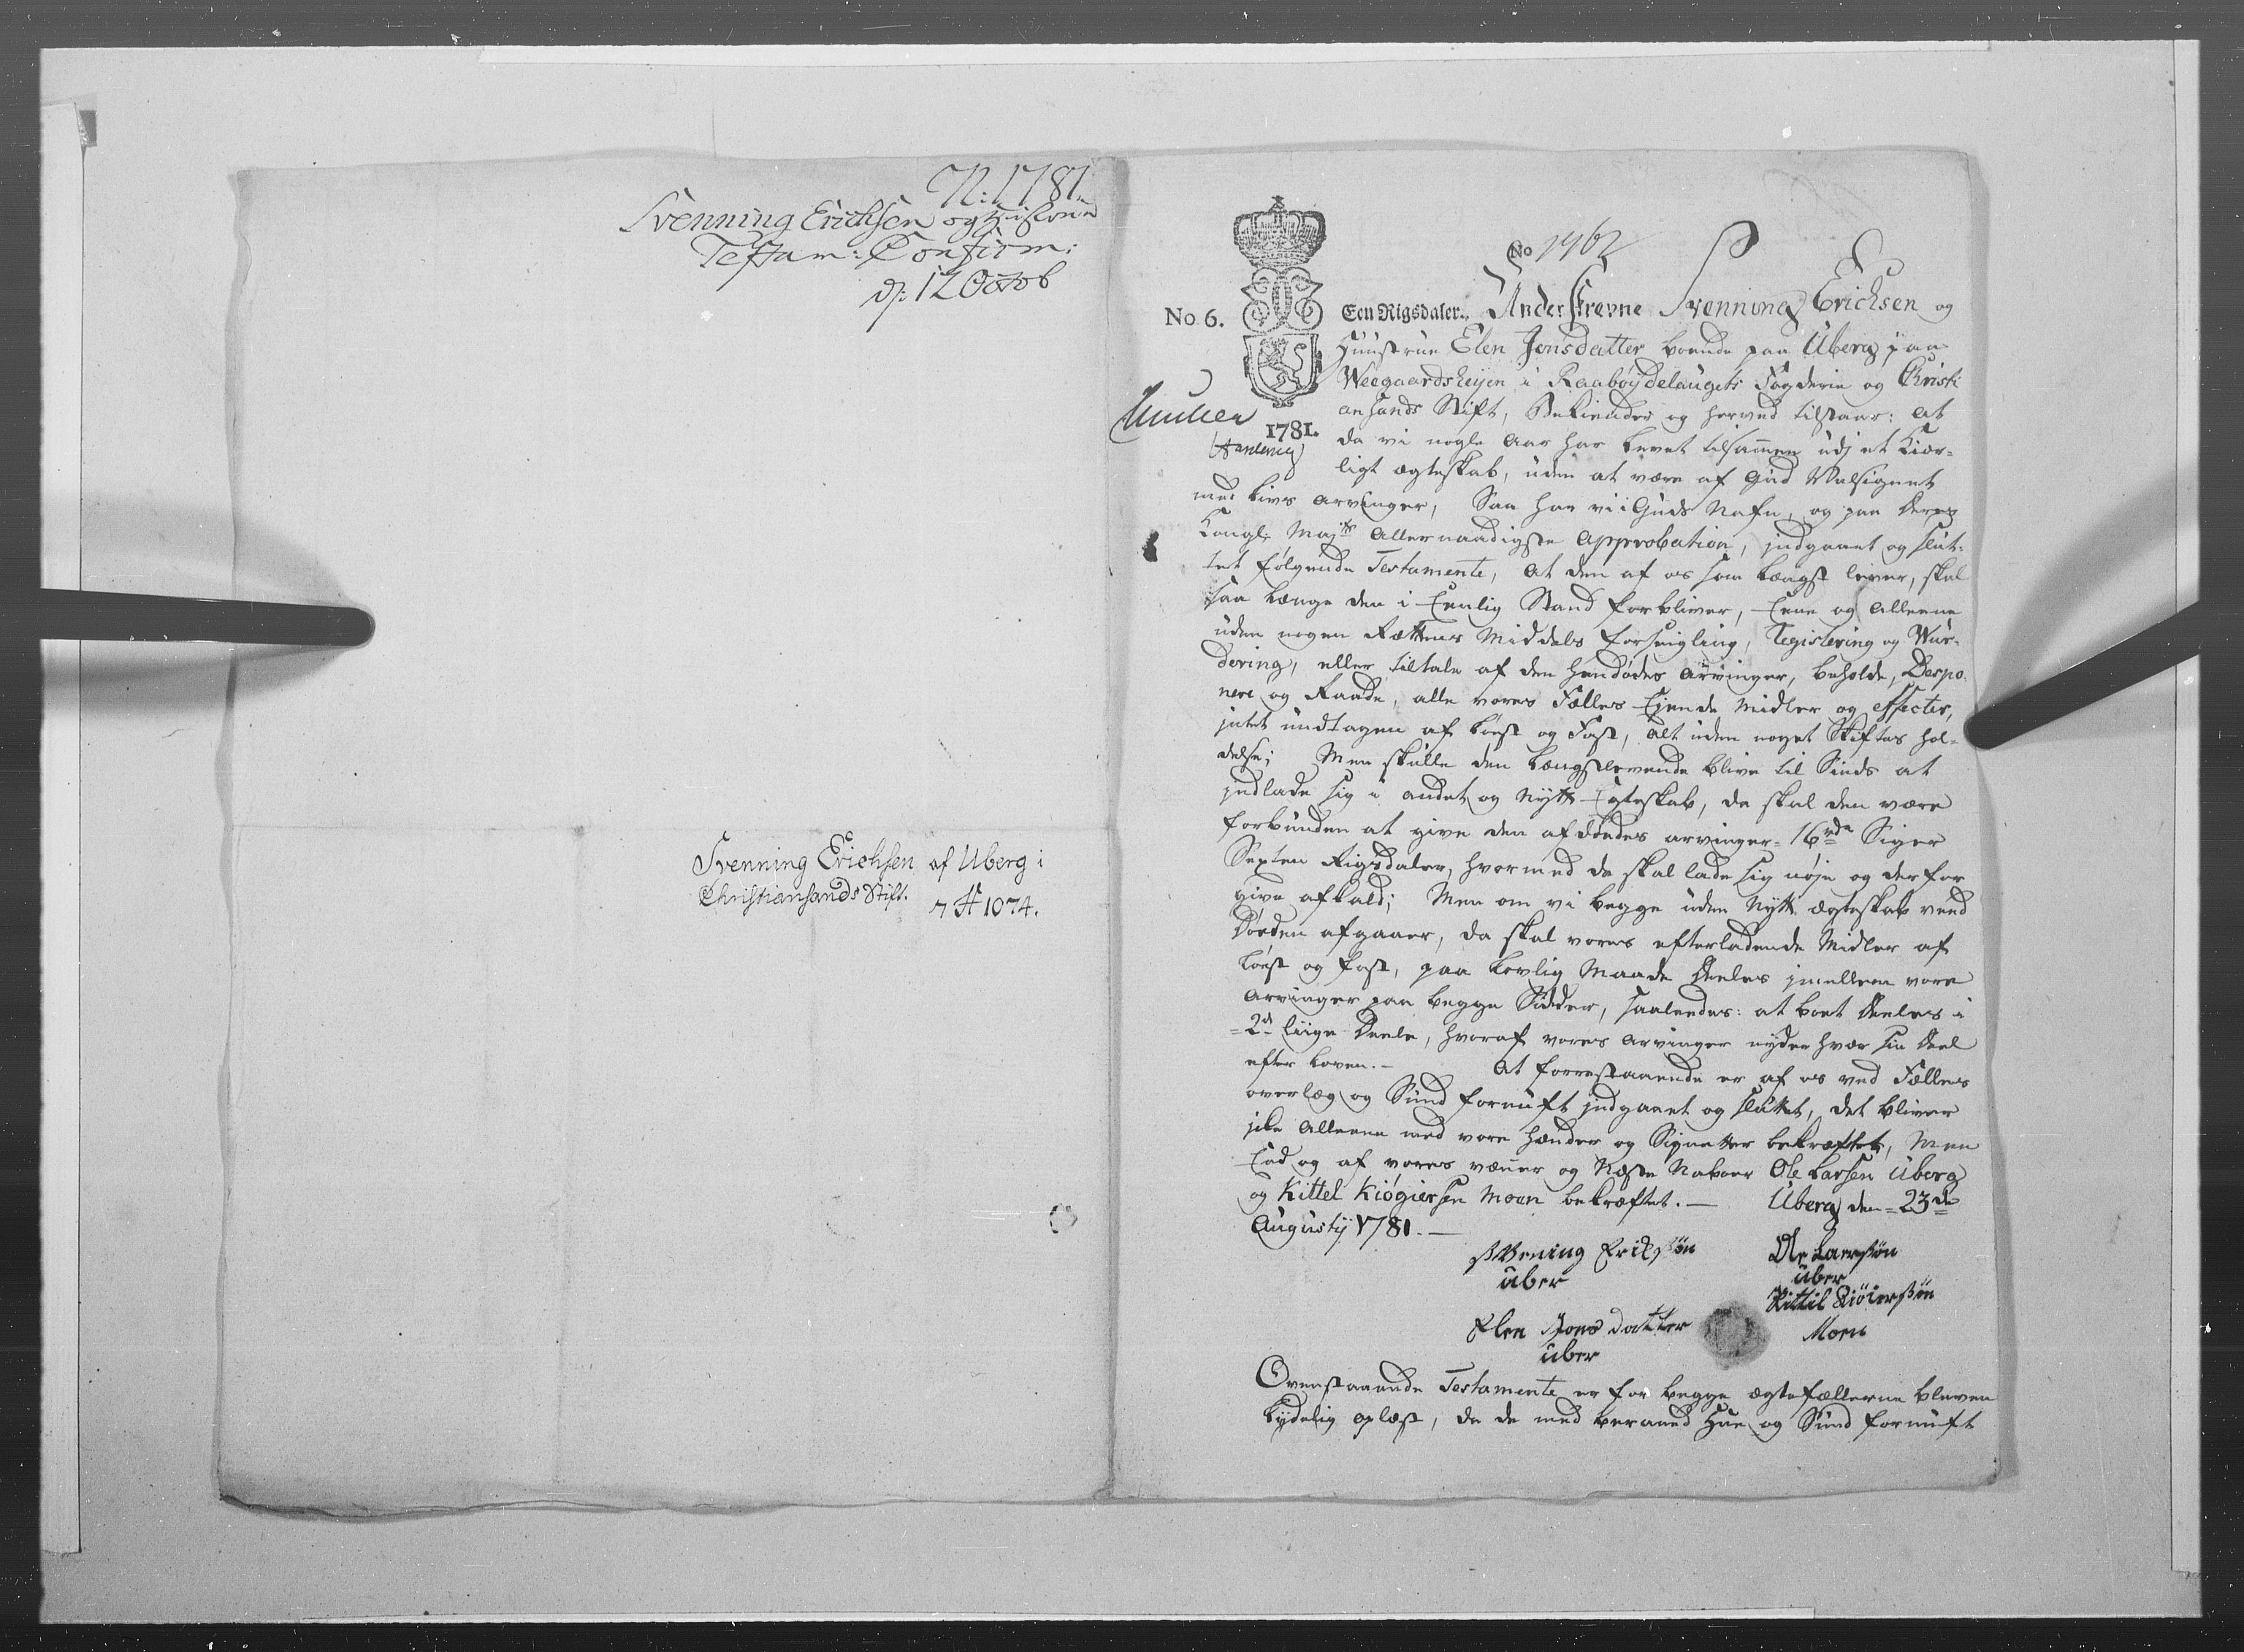 N: 1781.
Svenning Erichsen og Hustrues
Testam: Confirm:
d: 12 Octob
Svenning Erichsen af Uberg i
Christiansands Stift.
7 A 1074.
No 1962
No 6.
Een Rigsdaler.
1781.
Underskrevne Svenning Erichsen og
Huustrue Elen Jonsdatter boende paa Uberg paa
Weegaardsheijen i Raabøijdelaugets Fogderie og Christi
ansands Stift, Bekiender og herved tilstaar: at
da vi nogle Aar har levet tilsamen udj et kiær-
ligt ægteskab, uden at være af Gud Velsignet
med Livs arvinger, Saa har vi i Guds Nafn, og paa Deres
Kongl: Maj:ts Allernaadigste Approbation, indgaaet og slut-
tet følgende Testamente, At den af os som længst lever, skal
saa længe den i Eenlig Stand forbliver, Eene og Alleene
uden nogen Rættens Middels forseigling, Registering og Vur-
dering, eller tiltale af den hendødes arvinger, beholde, Despo-
nere og Raade, alle vores Fælles Ejende Midler og effecter,
intet undtagen af Løst og Fast, alt uden noget Skiftes hol-
delse; Men skulle den Længstlevende blive til Sinds at
indlade sig i andet og Nytt Egteskab, da skal den være
forbunden at give den afdødes arvinger 16rdr Siger
Sexten Rigsdaler, hvormed de skal lade sig nøje og derfor
give afkald; Men om vi begge uden Nytt ægteskab ved
Døden afgaaer, da skal vores efterladende Midler af
Løst og fast, paa Lovlig Maade Deeles imellem vore
Arvinger paa begge Sidder, saaledes: at boet Deeles i
2de liige Deele, hvoraf vores arvinger nyder hver sin Deel
efter Loven. – At forrestaaende er af os ved Fælles
overlæg og Sund fornuft indgaaet og sluttet, det bliver
icke Alleene med vore hænder og Signetter bekræftet, Men
End og af vores vænner og Næste Naboer Ole Larsen Uberg
og Kittel Kiøgiersen Moen bekræftet. – Uberg den 23de
Augustij 1781. –
Svening Erikssøn
uber
Ole Laerssøn
uber
Kittil Kiøiersøn
Moen
Elen Jons datter
uber
Ovenstaaende Testamente er for begge ægtefællerne bleven
Lydelig oplæst, da de med beraad Hue og Sund fornuft